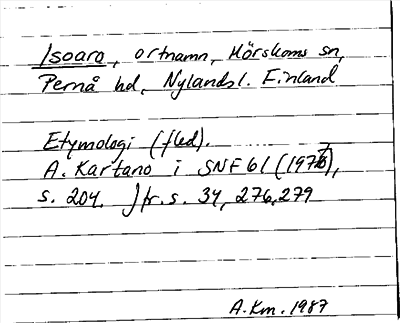 Isoara, ortnamn, Mörskoms sn,
Pernå hd, Nylands l. Finland
Etymologi (fled).
A. Kartano i SNF 61 (1976),
s. 204. Jfr. s. 34, 276, 279
A. Km. 1987